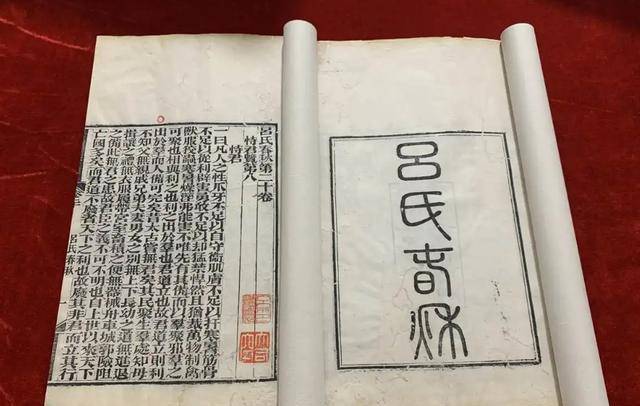 呂氏春秋
呂氏春秋第二十卷
恃君覽第八
恃君
一曰凡人之性爪牙不足以自守衛肌膚不足以扞寒暑筋骨
不足以從利辟害勇敢不足以却猛禁悍然且猶裁萬物制禽
獸服狡蟲寒暑燥溼弗能害不唯先有其備而以羣聚邪羣之
可聚也相與利之也利之出於羣也君道立也故君道立則利
出於羣而人備可完矣昔太古嘗無君矣其民聚生羣處知母
不知父無親戚兄弟夫妻男女之別無上下長幼之道無進退
揖讓之禮無衣服履帶宮室畜積之便無器械舟車城郭險阻
之備此無君之患故君臣之義不可不明也自上世以來天下
亡國多矣而君道不廢者天下之利也故廢其非君而立其行
呂氏春秋